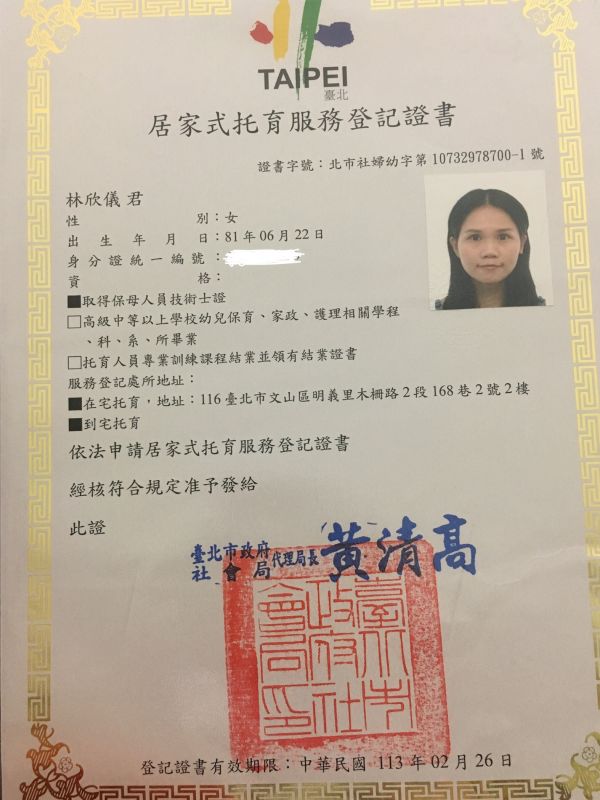 TAIPEI
臺北
居家式托育服務登記證書
證書字號：北市社婦幼字第 10732978700-1 號
林欣儀 君
性別：女
出生年月日：81 年 06 月 22 日
身分證統一編號：
資格：
■取得保母人員技術士證
□高級中等以上學校幼兒保育、家政、護理相關學程
、科、系、所畢業
□托育人員專業訓練課程結業並領有結業證書
服務登記處所地址：
■在宅托育，地址：116 臺北市文山區明義里木柵路 2 段 168 巷 2 號 2 樓
■到宅托育
依法申請居家式托育服務登記證書
經核符合規定准予發給
此證
臺北市政府
社會局
代理局長 黃清高
臺北市政府社會局印
登記證書有效期限：中華民國 113 年 02 月 26 日